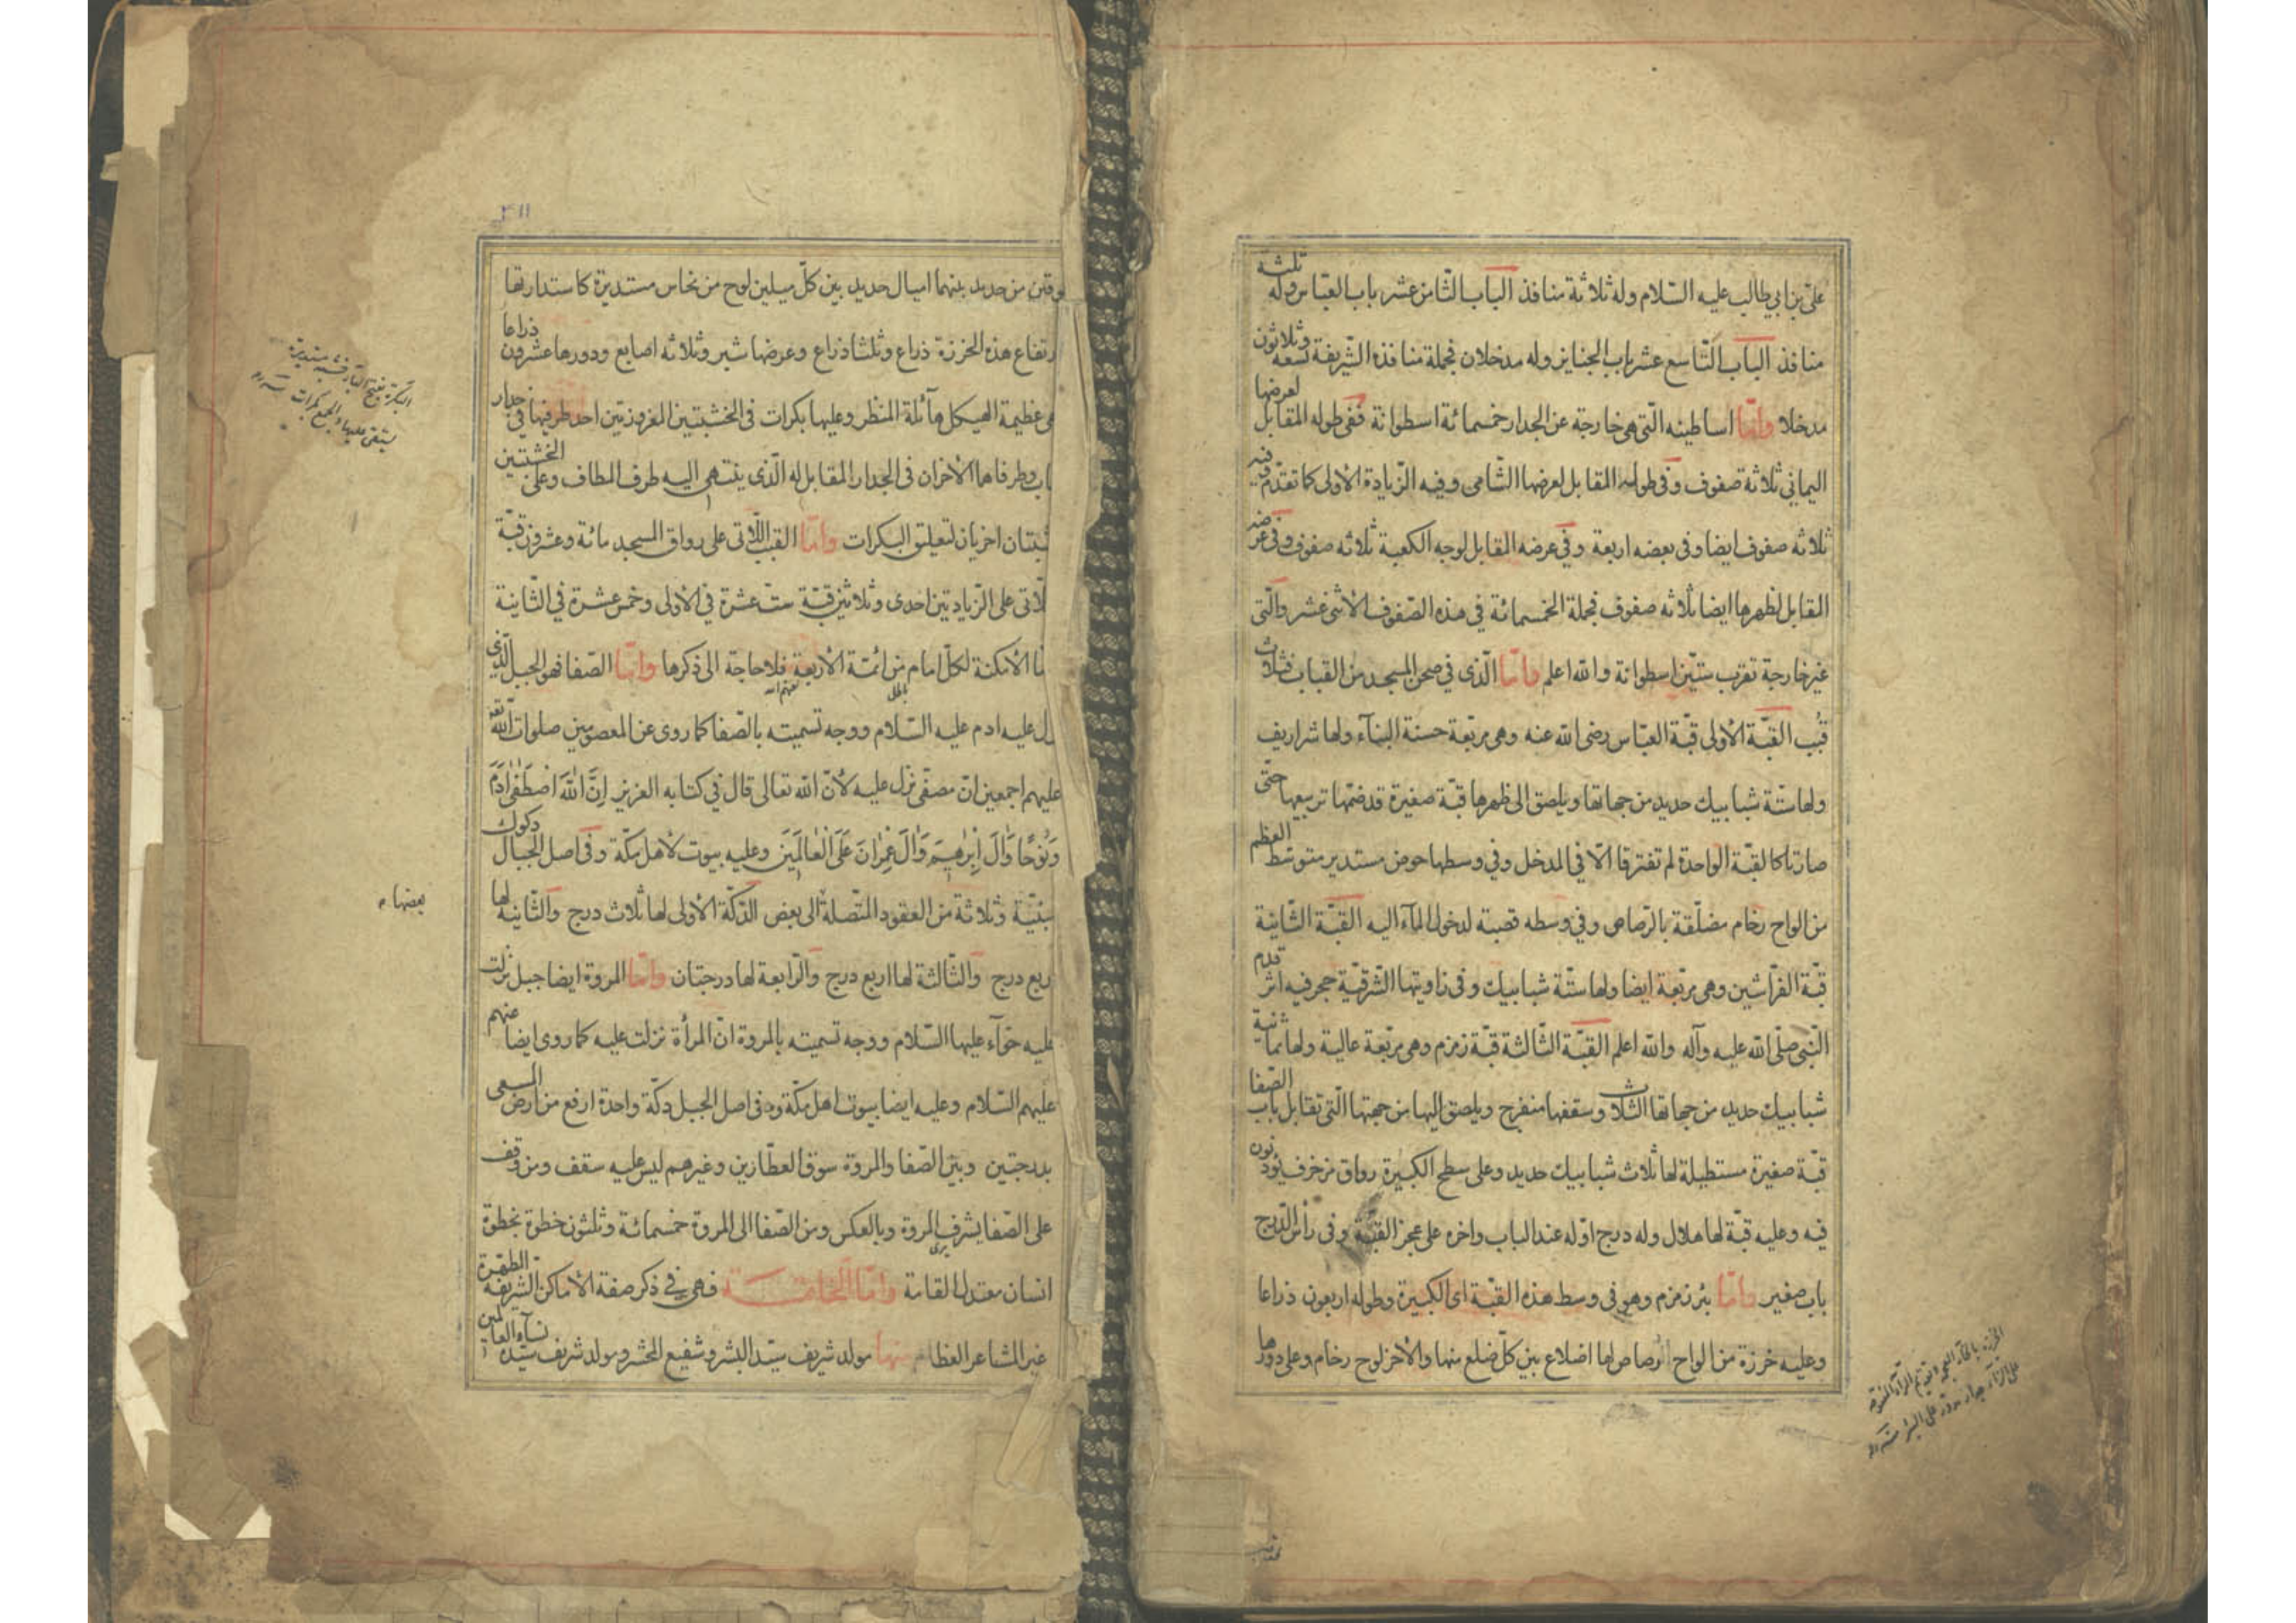 علي بن ابي طالب عليه السّلام وله ثلاثة منافذ الباب الثّامن عشر باب العبّاس وله ثلثة
منافذ الباب التّاسع عشر باب الجنايز وله مدخلان فجملة منافذه الشّريفة تسعه وثلاثون
مدخلا وامّا اساطينه الّتي هي خارجة عن الجدار خمسمائة اسطوانة ففي طوله المقابل لعرضها
اليماني ثلاثة صفوف وفي طوله المقابل لعرضها الشّامي وفيه الزّيادة الأولى كما تقدّم فيه
ثلاثه صفوف ايضا وفي بعضه اربعة وفي عرضه المقابل لوجه الكعبة ثلاثه صفوف وفي عرضه
المقابل لظهرها ايضا ثلاثه صفوف فجملة الخمسمائة في هذه الصّفوف الأثني عشر والّتي
غير خارجة تقرب ستّين اسطوانة والله اعلم وامّا الّذي في صحن المسجد من القباب فثلاث
قُبب القبّة الأولى قبّة العبّاس رضي الله عنه وهي مربّعة حسنة البنآء ولها شراريف
ولها ستّة شبابيك حديد من جهاتها ويلصق الى ظهرها قبّة صغيرة قد ضمّها تربيعها حتّى
صارتا كالقبّة الواحدة لم تفترقا الّا في المدخل وفي وسطها حوض مستدير متوسّط العظم
من الواح رخام مضلّقة بالرّصاص وفي وسطه قصبة لدخول المآء اليه القبّة الثّانية
قبّة الفرّاشين وهي مربّعة ايضا ولها ستّة شبابيك وفي زاويتها الشّرقيّة حجر فيه اثر قدم
النّبي صلّى الله عليه وآله والله اعلم القبّة الثّالثة قبّة زمزم وهي مربّعة عالية ولها ثمانية
شبابيك حديد من جهاتها الثلاث وسقفها منفرج ويلصق اليها من جهتها الّتي تقابل باب الصّفا
قبّة صغيرة مستطيلة لها ثلاث شبابيك حديد وعلى سطح الكبيرة رواق مزخرف يؤذنون
فيه وعليه قبّة لها هلال وله درج اوّله عند الباب واخره على عجز القبّة وفي رأس الدّرج
باب صغير وامّا بئر زمزم وهو في وسط هذه القبّة اى الكبيرة وطوله اربعون ذراعا
وعليه خرزة من الواح الرصاص لها اضلاع بين كلّ ضلع منها والأخر لوح رخام وعلى دورها
طوقين من حديد بينهما اميال حديد بين كلّ ميلين لوح من نحاس مستديرة كاستدارتها
ارتفاع هذه الخرزة ذراع وثلثا ذراع وعرضها شبر وثلاثه اصابع ودورها عشرون ذراعا
هي عظيمة الهيكل هآئلة المنظر وعليها بكرات في الخشبتين المغروزتين احد طرفيها في جدار
باب وطرفاهما الأخران في الجدار المقابل له الّذي ينتهي اليه طرف المطاف وعلى الخشبتين
خشبتان اخريان لتعليق البكرات وامّا القبب اللّاتى على رواق المسجد مائة وعشرون قبّة
للّاتى على الزيادتين احدى وثلاثين قبّة ستّ عشرة في الأولى وخمس عشرة في الثّانية
ما الأمكنة لكلّ امام من ائمّة الأربعة فلا حاجة الى ذكرها وامّا الصّفا فهو الجبل الّذي
زل عليه ادم عليه السّلام ووجه تسميته بالصّفا كما روى عن المعصومين صلوات الله
عليهم اجمعين انّ مصفّى نزل عليه لأنّ الله تعالى قال في كتابه العزيز اِنَّ اللهَ اصْطَفٰى اٰدَمَ
وَنُوحًا وَاٰلَ اِبرٰهيمَ وَاٰلَ عِمْرٰانَ عَلَى الْعٰالَمِينَ وعليه بيوت لأهل مكّة وفي اصل الجبال دكوك
مبنيّة وثلاثة من العقود المتّصلة الى بعض الدّكّة الأولى لها ثلاث درج والثّانية لها
اربع درج والثّالثة لها اربع درج والرّابعة لها درجتان وامّا المروة ايضا جبل نزلت
عليه حوّآء عليها السّلام ووجه تسميته بالمروة انّ المرأة نزلت عليه كما روى ايضا عنهم
عليهم السّلام وعليه ايضا بيوت اهل مكّة وفي اصل الجبل دكّة واحدة ارفع من ارض المسعى
بدرجتين وبين الصّفا والمروة سوق العطّارين وغيرهم ليس عليه سقف ومن وقف
على الصّفا يشرف المروة وبالعكس ومن الصّفا الى المروة خمسمائة وثلثون خطوة بخطوة
انسان معتدل القامة وامّا الخاتمة فهي في ذكر صفة الأماكن الشّريفة المطهّرة
غير المشاعر العظام منها مولد شريف سيّد البشر وشفيع المحشر ومولد شريف سيّدة نسآء العالمين
بعضها